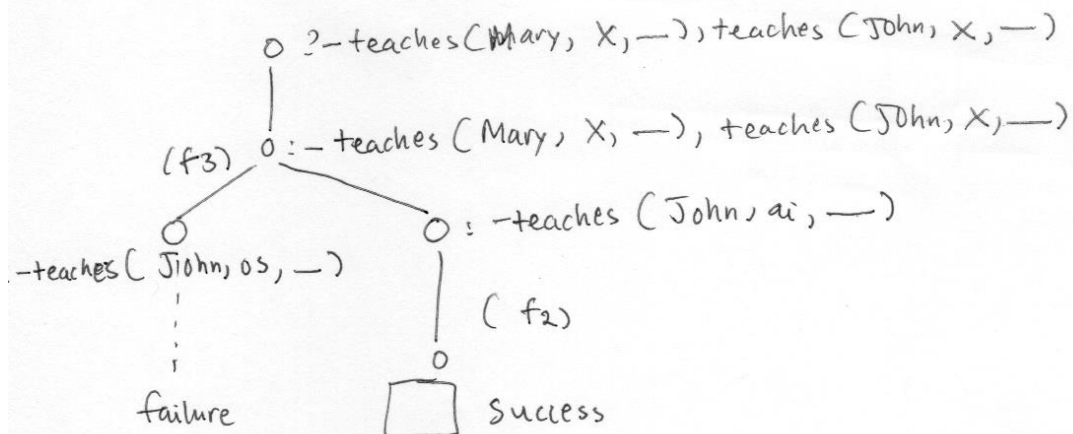 ?-teaches(Mary, X, —), teaches (John, X, —)
:- teaches (Mary, X, —), teaches (John, X, —)
(f3)
: -teaches (John, ai, —)
-teaches( John, os, —)
(f2)
failure
success